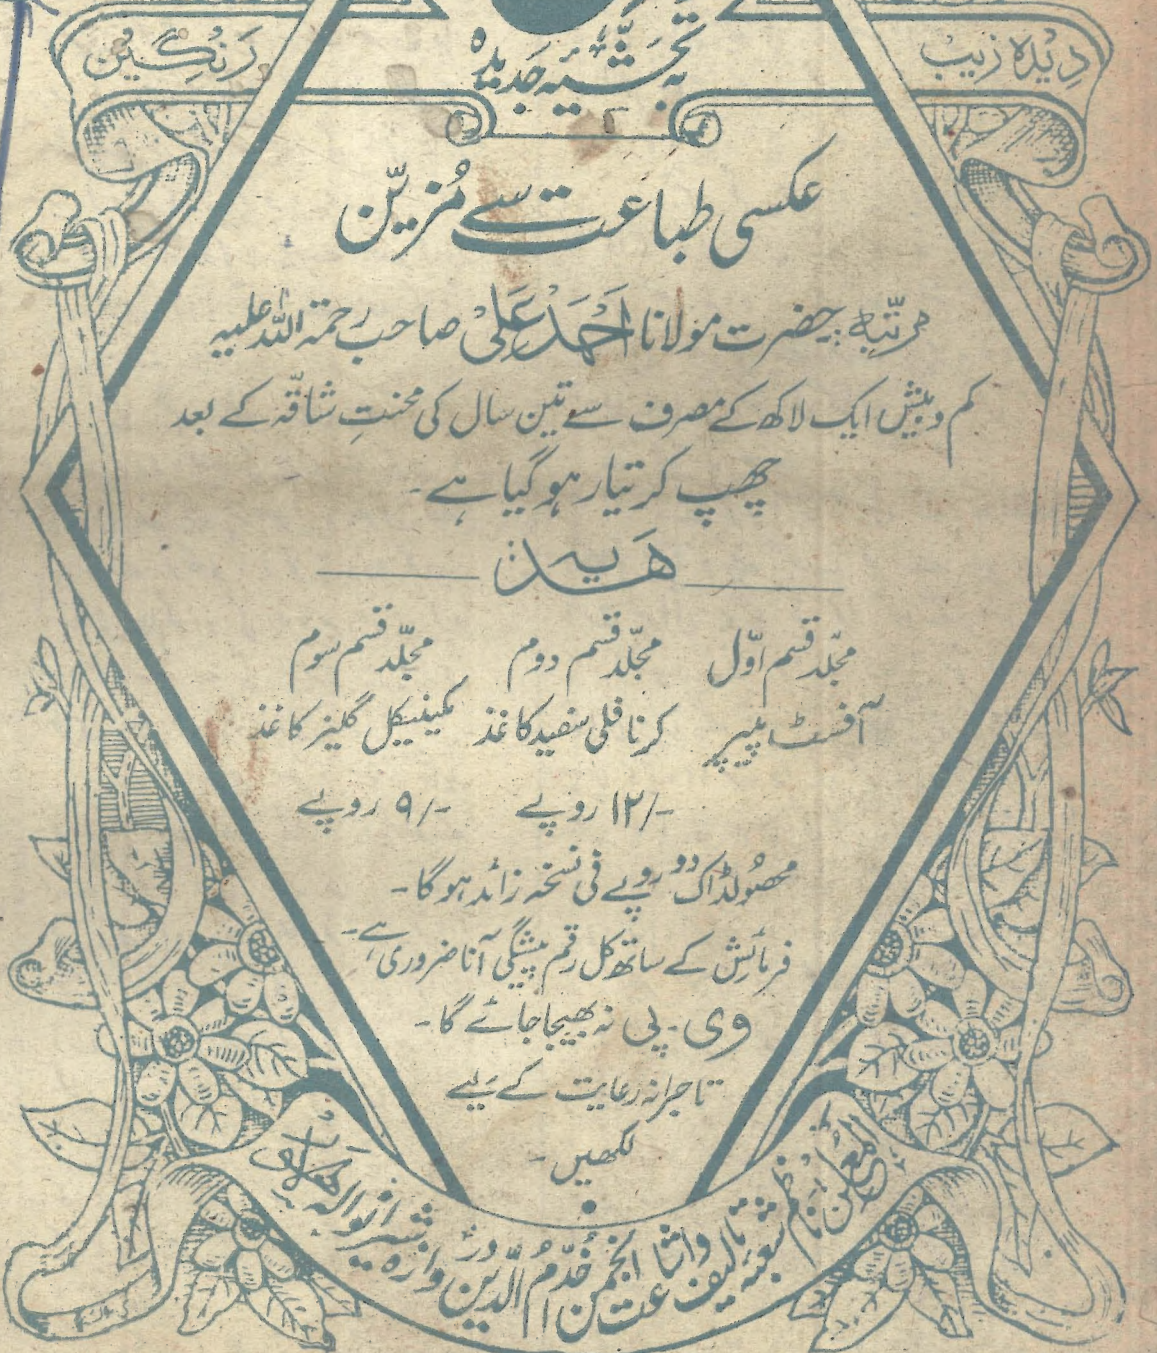 دیدہ زیب
بہ تحشیہ جدیدہ
رنگین
عکسی طباعت سے مُزیّن
مرتبہ: حضرت مولانا احمد علی صاحب رحمۃ اللہ علیہ
کم و بیش ایک لاکھ کے مصرف سے تین سال کی محنتِ شاقّہ کے بعد
چھپ کر تیار ہو گیا ہے۔
ھدیہ
مجلّد قسم اوّل
آفسٹ پیپر
مجلّد قسم دوم
کرنافلی سفید کاغذ
۱۲/- روپے
مجلّد قسم سوم
مکینیکل گلیز کاغذ
۹/- روپے
محصولڈاک دو روپے فی نسخہ زائد ہو گا۔
فرمائش کے ساتھ کل رقم پیشگی آنا ضروری ہے۔
وی۔پی نہ بھیجا جائے گا۔
تاجرانہ رعایت کے لیے
لکھیں۔
المعلن: ناظم شعبۂ تالیف و اشاعت انجمن خدّام الدّین دروازہ شیرانوالہ لاہور